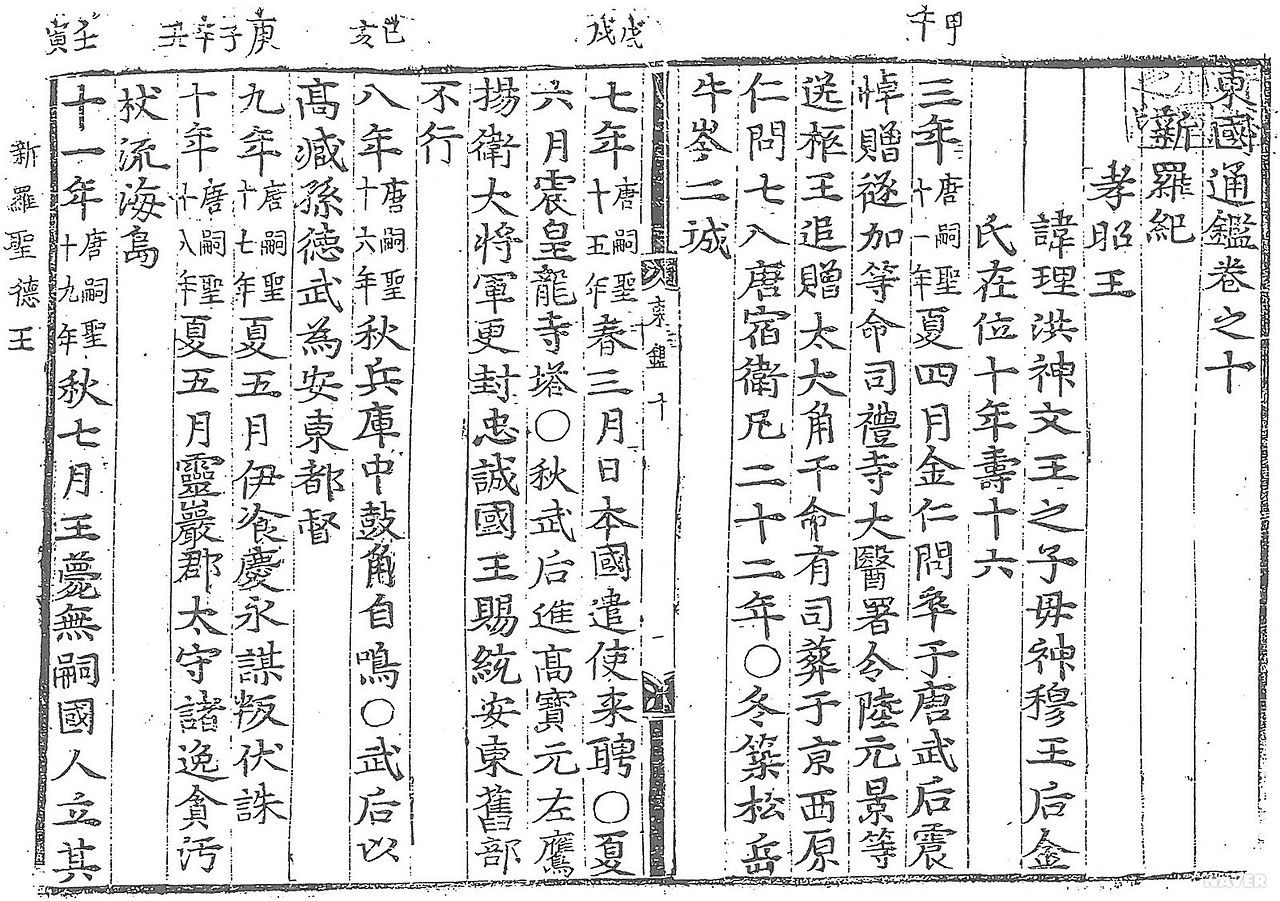 東國通鑑卷之十
新羅紀
孝昭王
諱理洪神文王之子母神穆王后金
氏在位十年壽十六
甲午
三年唐嗣聖十一年夏四月金仁問卒于唐武后震
悼贈襚加等命司禮寺大醫署令陸元景等
送柩王追贈太大角干命有司葬于京西原
仁問七入唐宿衛凡二十二年○冬築松岳
牛岑二城
東鑑 十
一
戊戌
七年唐嗣聖十五年春三月日本國遣使來聘○夏
六月震皇龍寺塔○秋武后進高寶元左鷹
揚衛大將軍更封忠誠國王賜統安東舊部
不行
己亥
八年唐嗣聖十六年秋兵庫中鼓角自鳴○武后以
高減孫德武為安東都督
庚子
九年唐嗣聖十七年夏五月伊飡慶永謀叛伏誅
辛丑
十年唐嗣聖十八年夏五月靈巖郡太守諸逸貪汚
杖流海島
壬寅
十一年唐嗣聖十九年秋七月王薨無嗣國人立其
新羅聖德王
NAVER